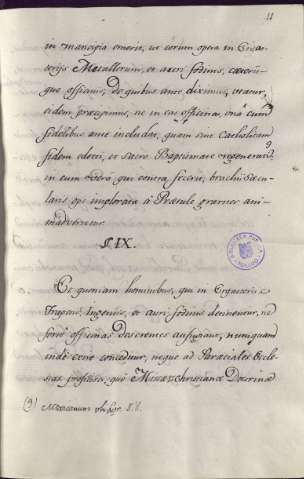 11
in mancipia emerit, ut eorum opera in Ergas-
terijs Metallorum, et auri fodinis, caeteris-
que officinis, de quibus ante diximus, utatur,
eidem praecipimus, ne in eas officinas, una cum
fidelibus ante includat, quam sint Catholicam
fidem edocti, et sacro Baptismate regenerati:
in eum vero qui contra fecerit, brachii Saecu-
laris ope implorata à Praesule graviter ani-
madvertetur.
§ IX.
Et quoniam hominibus, qui in Ergasterijs
Trapetis, Ingenijs, et auri fodinis detinentur, ne
forte officinas deserentes aufugiant, nunquam
inde exire conceditur, neque ad Parochiales Eccle-
sias profisci, quo Missae, Christianae Doctrinae
(9) Mexicanum ubi supr. §. 8.